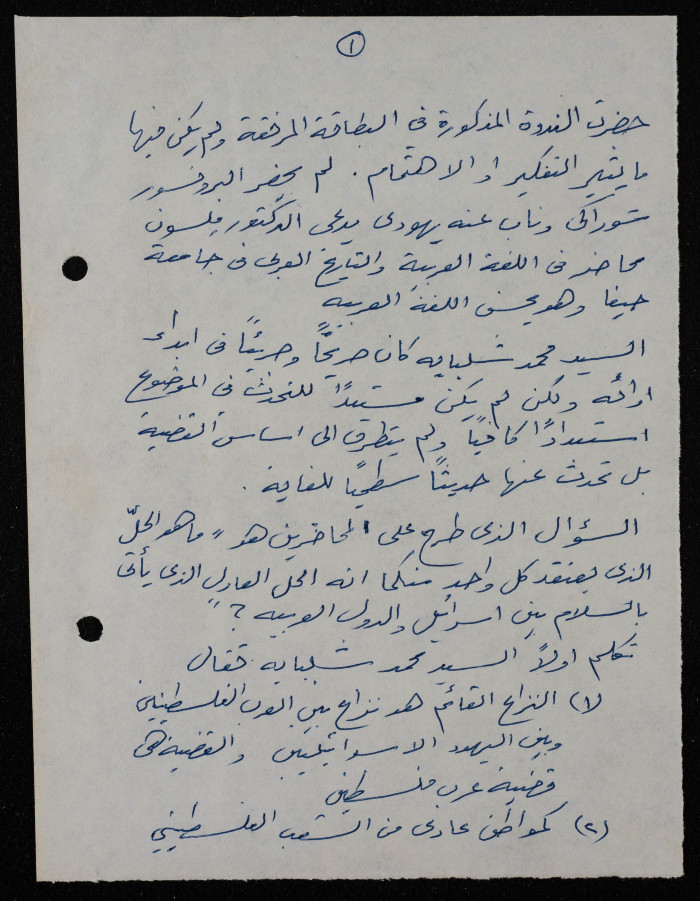 ١
حضرت الندوة المذكورة في البطاقة المرفقة ولم يكن فيها
ما يثير التفكير او الاهتمام . لم يحضر البروفسور
شوراكي وناب عنه يهودى يدعى الدكتور ملسون
محاضر فى اللغة العربية والتاريخ العربى فى جامعة
حيفا وهو يحسن اللغة العربيه
السيد محمد شلبايه كان صريحًا وجريئًا فى ابداء
ارائه ولكن لم يكن مستعدًا للتحدث في الموضوع
استعدادًا كافيًا ولم يتطرق الى اساس القضية
بل تحدث عنها حديثًا سطحيًا للغاية .
السؤال الذى طرح على المحاضرين هو " ما هو الحلّ
الذى يعتقد كل واحد منكما انه الحل العادل الذى يأتى
بالسلام بين اسرائيل والدول العربيه ؟ "
تكلم اولاً السيد محمد شلبايه فقال
(١) النزاع القائم هو نزاع بين العرب الفلسطينيين
وبين اليهود الاسرائيليين والقضية هى
قضية عرب فلسطين
(٢) كمواطن عادى من الشعب الفلسطيني